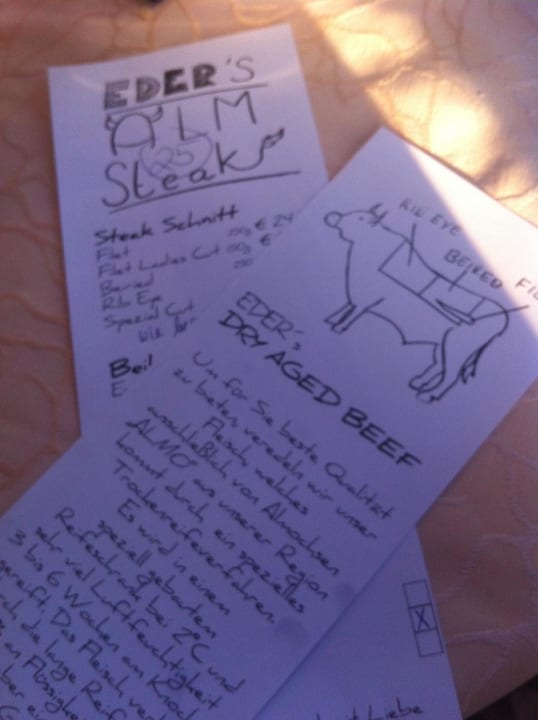 EDER'S
ALM
Steak
Steak Schnitt
Filet
Filet Ladies Cut
Beried
Rib Eye
Spezial Cut
Beil
RIB EYE
BEIRED
EDER'S
DRY AGED BEEF
Um für Sie beste Qualität
zu bieten veredeln wir unser
Fleisch, welches
ausschließlich von Almochsen
ALMO aus unserer Region
kommt durch ein spezielles
Trockenreifeverfahren.
Es wird in einem
speziell gebauten
Reifeschrank bei 2°C und
sehr viel Luftfeuchtigkeit
3 bis 6 Wochen am Knoch
gereift. Das Fleisch verl
die lange Reif
an Flüssigke
X